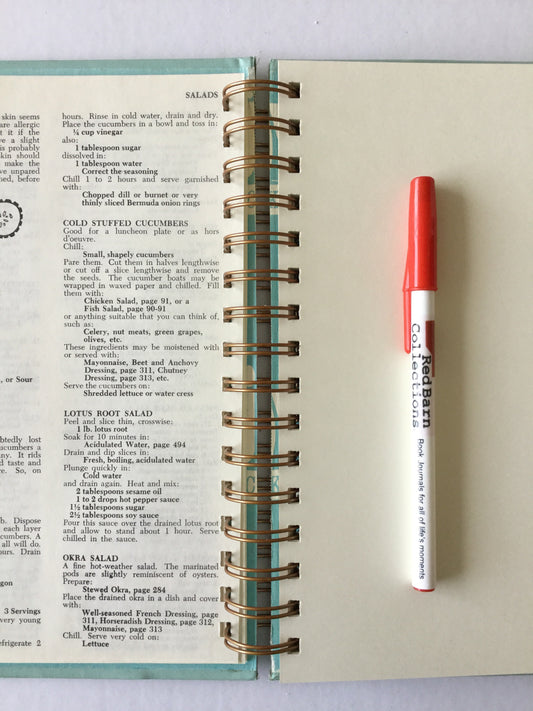 SALADS
skin seems
are allergic
t it if the
ve a slight
is probably
skin should
make the
ve unpared
ned, before
, or Sour
btedly lost
ucumbers a
ny. It rids
d taste and
re. So, on
b. Dispose
each layer
cumbers. A
all will do.
ours. Drain
gon
3 Servings
very young
efrigerate 2
hours. Rinse in cold water, drain and dry.
Place the cucumbers in a bowl and toss in:
¼ cup vinegar
also:
1 tablespoon sugar
dissolved in:
1 tablespoon water
Correct the seasoning
Chill 1 to 2 hours and serve garnished
with:
Chopped dill or burnet or very
thinly sliced Bermuda onion rings
COLD STUFFED CUCUMBERS
Good for a luncheon plate or as hors
d'oeuvre.
Chill:
Small, shapely cucumbers
Pare them. Cut them in halves lengthwise
or cut off a slice lengthwise and remove
the seeds. The cucumber boats may be
wrapped in waxed paper and chilled. Fill
them with:
Chicken Salad, page 91, or a
Fish Salad, page 90-91
or anything suitable that you can think of,
such as:
Celery, nut meats, green grapes,
olives, etc.
These ingredients may be moistened with
or served with:
Mayonnaise, Beet and Anchovy
Dressing, page 311, Chutney
Dressing, page 313, etc.
Serve the cucumbers on:
Shredded lettuce or water cress
LOTUS ROOT SALAD
Peel and slice thin, crosswise:
1 lb. lotus root
Soak for 10 minutes in:
Acidulated Water, page 494
Drain and dip slices in:
Fresh, boiling, acidulated water
Plunge quickly in:
Cold water
and drain again. Heat and mix:
2 tablespoons sesame oil
1 to 2 drops hot pepper sauce
1½ tablespoons sugar
2½ tablespoons soy sauce
Pour this sauce over the drained lotus root
and allow to stand about 1 hour. Serve
chilled in the sauce.
OKRA SALAD
A fine hot-weather salad. The marinated
pods are slightly reminiscent of oysters.
Prepare:
Stewed Okra, page 284
Place the drained okra in a dish and cover
with:
Well-seasoned French Dressing, page
311, Horseradish Dressing, page 312,
Mayonnaise, page 313
Chill. Serve very cold on:
Lettuce
Red Barn
Collections
Book Journals for all of life's moments